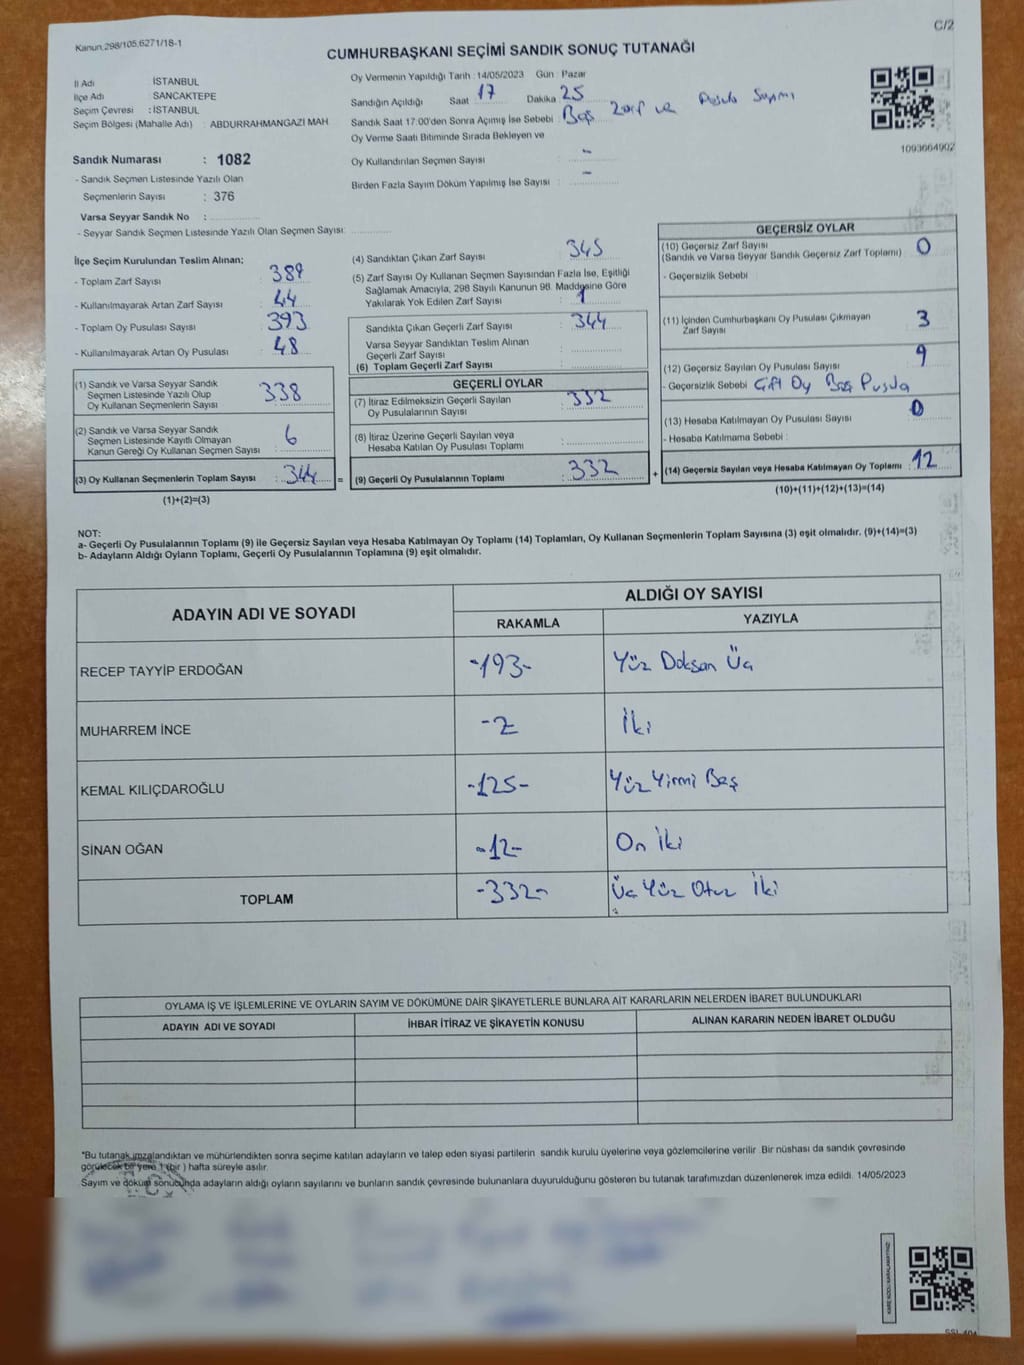 Kanun.298/105,6271/18-1
C/2
CUMHURBAŞKANI SEÇİMİ SANDIK SONUÇ TUTANAĞI
İl Adı İSTANBUL
İlçe Adı SANCAKTEPE
Seçim Çevresi : İSTANBUL
Seçim Bölgesi (Mahalle Adı) : ABDURRAHMANGAZİ MAH.
Oy Vermenin Yapıldığı Tarih : 14/05/2023 Gün : Pazar
Sandığın Açıldığı Saat 17 Dakika 25
Sandık Saat 17:00'den Sonra Açımış İse Sebebi : Boş zarf ve Pusula Sayımı
Oy Verme Saati Bitiminde Sırada Bekleyen ve
Oy Kullandırılan Seçmen Sayısı : -
Birden Fazla Sayım Döküm Yapılmış İse Sayısı : -
1093664902
Sandık Numarası : 1082
- Sandık Seçmen Listesinde Yazılı Olan
Seçmenlerin Sayısı : 376
Varsa Seyyar Sandık No :
- Seyyar Sandık Seçmen Listesinde Yazılı Olan Seçmen Sayısı:
İlçe Seçim Kurulundan Teslim Alınan:
- Toplam Zarf Sayısı : 389
- Kullanılmayarak Artan Zarf Sayısı : 44
- Toplam Oy Pusulası Sayısı : 393
- Kullanılmayarak Artan Oy Pusulası : 48
(1) Sandık ve Varsa Seyyar Sandık
Seçmen Listesinde Yazılı Olup
Oy Kullanan Seçmenlerin Sayısı : 338
(2) Sandık ve Varsa Seyyar Sandık
Seçmen Listesinde Kayıtlı Olmayan
Kanun Gereği Oy Kullanan Seçmen Sayısı : 6
(3) Oy Kullanan Seçmenlerin Toplam Sayısı : 344 =
(1)+(2)=(3)
(4) Sandıktan Çıkan Zarf Sayısı : 345
(5) Zarf Sayısı Oy Kullanan Seçmen Sayısından Fazla İse, Eşitliği
Sağlamak Amacıyla, 298 Sayılı Kanunun 98. Maddesine Göre
Yakılarak Yok Edilen Zarf Sayısı : 1
Sandıkta Çıkan Geçerli Zarf Sayısı : 344
Varsa Seyyar Sandıktan Teslim Alınan
Geçerli Zarf Sayısı :
(6) Toplam Geçerli Zarf Sayısı :
GEÇERLİ OYLAR
(7) İtiraz Edilmeksizin Geçerli Sayılan
Oy Pusulalarının Sayısı : 332
(8) İtiraz Üzerine Geçerli Sayılan veya
Hesaba Katılan Oy Pusulası Toplamı :
(9) Geçerli Oy Pusulalarının Toplamı : 332 +
GEÇERSİZ OYLAR
(10) Geçersiz Zarf Sayısı
(Sandık ve Varsa Seyyar Sandık Geçersiz Zarf Toplamı) : 0
- Geçersizlik Sebebi :
(11) İçinden Cumhurbaşkanı Oy Pusulası Çıkmayan
Zarf Sayısı : 3
(12) Geçersiz Sayılan Oy Pusulası Sayısı : 9
- Geçersizlik Sebebi : Çift Oy Boş Pusula
(13) Hesaba Katılmayan Oy Pusulası Sayısı : 0
- Hesaba Katılmama Sebebi :
(14) Geçersiz Sayılan veya Hesaba Katılmayan Oy Toplamı : 12
(10)+(11)+(12)+(13)=(14)
NOT:
a- Geçerli Oy Pusulalarının Toplamı (9) ile Geçersiz Sayılan veya Hesaba Katılmayan Oy Toplamı (14) Toplamları, Oy Kullanan Seçmenlerin Toplam Sayısına (3) eşit olmalıdır. (9)+(14)=(3)
b- Adayların Aldığı Oyların Toplamı, Geçerli Oy Pusulalarının Toplamına (9) eşit olmalıdır.
ADAYIN ADI VE SOYADI
ALDIĞI OY SAYISI
RAKAMLA YAZIYLA
RECEP TAYYİP ERDOĞAN -193- Yüz Doksan Üç
MUHARREM İNCE -2 İki
KEMAL KILIÇDAROĞLU -125- Yüz Yirmi Beş
SİNAN OĞAN -12- On İki
TOPLAM -332- Üç Yüz Otuz İki
OYLAMA İŞ VE İŞLEMLERİNE VE OYLARIN SAYIM VE DÖKÜMÜNE DAİR ŞİKAYETLERLE BUNLARA AİT KARARLARIN NELERDEN İBARET BULUNDUKLARI
ADAYIN ADI VE SOYADI İHBAR İTİRAZ VE ŞİKAYETİN KONUSU ALINAN KARARIN NEDEN İBARET OLDUĞU
*Bu tutanak imzalandıktan ve mühürlendikten sonra seçime katılan adayların ve talep eden siyasi partilerin sandık kurulu üyelerine veya gözlemcilerine verilir. Bir nüshası da sandık çevresinde
görülecek bir yere 1 (bir) hafta süreyle asılır.
Sayım ve döküm sonucunda adayların aldığı oyların sayılarını ve bunların sandık çevresinde bulunanlara duyurulduğunu gösteren bu tutanak tarafımızdan düzenlenerek imza edildi. 14/05/2023